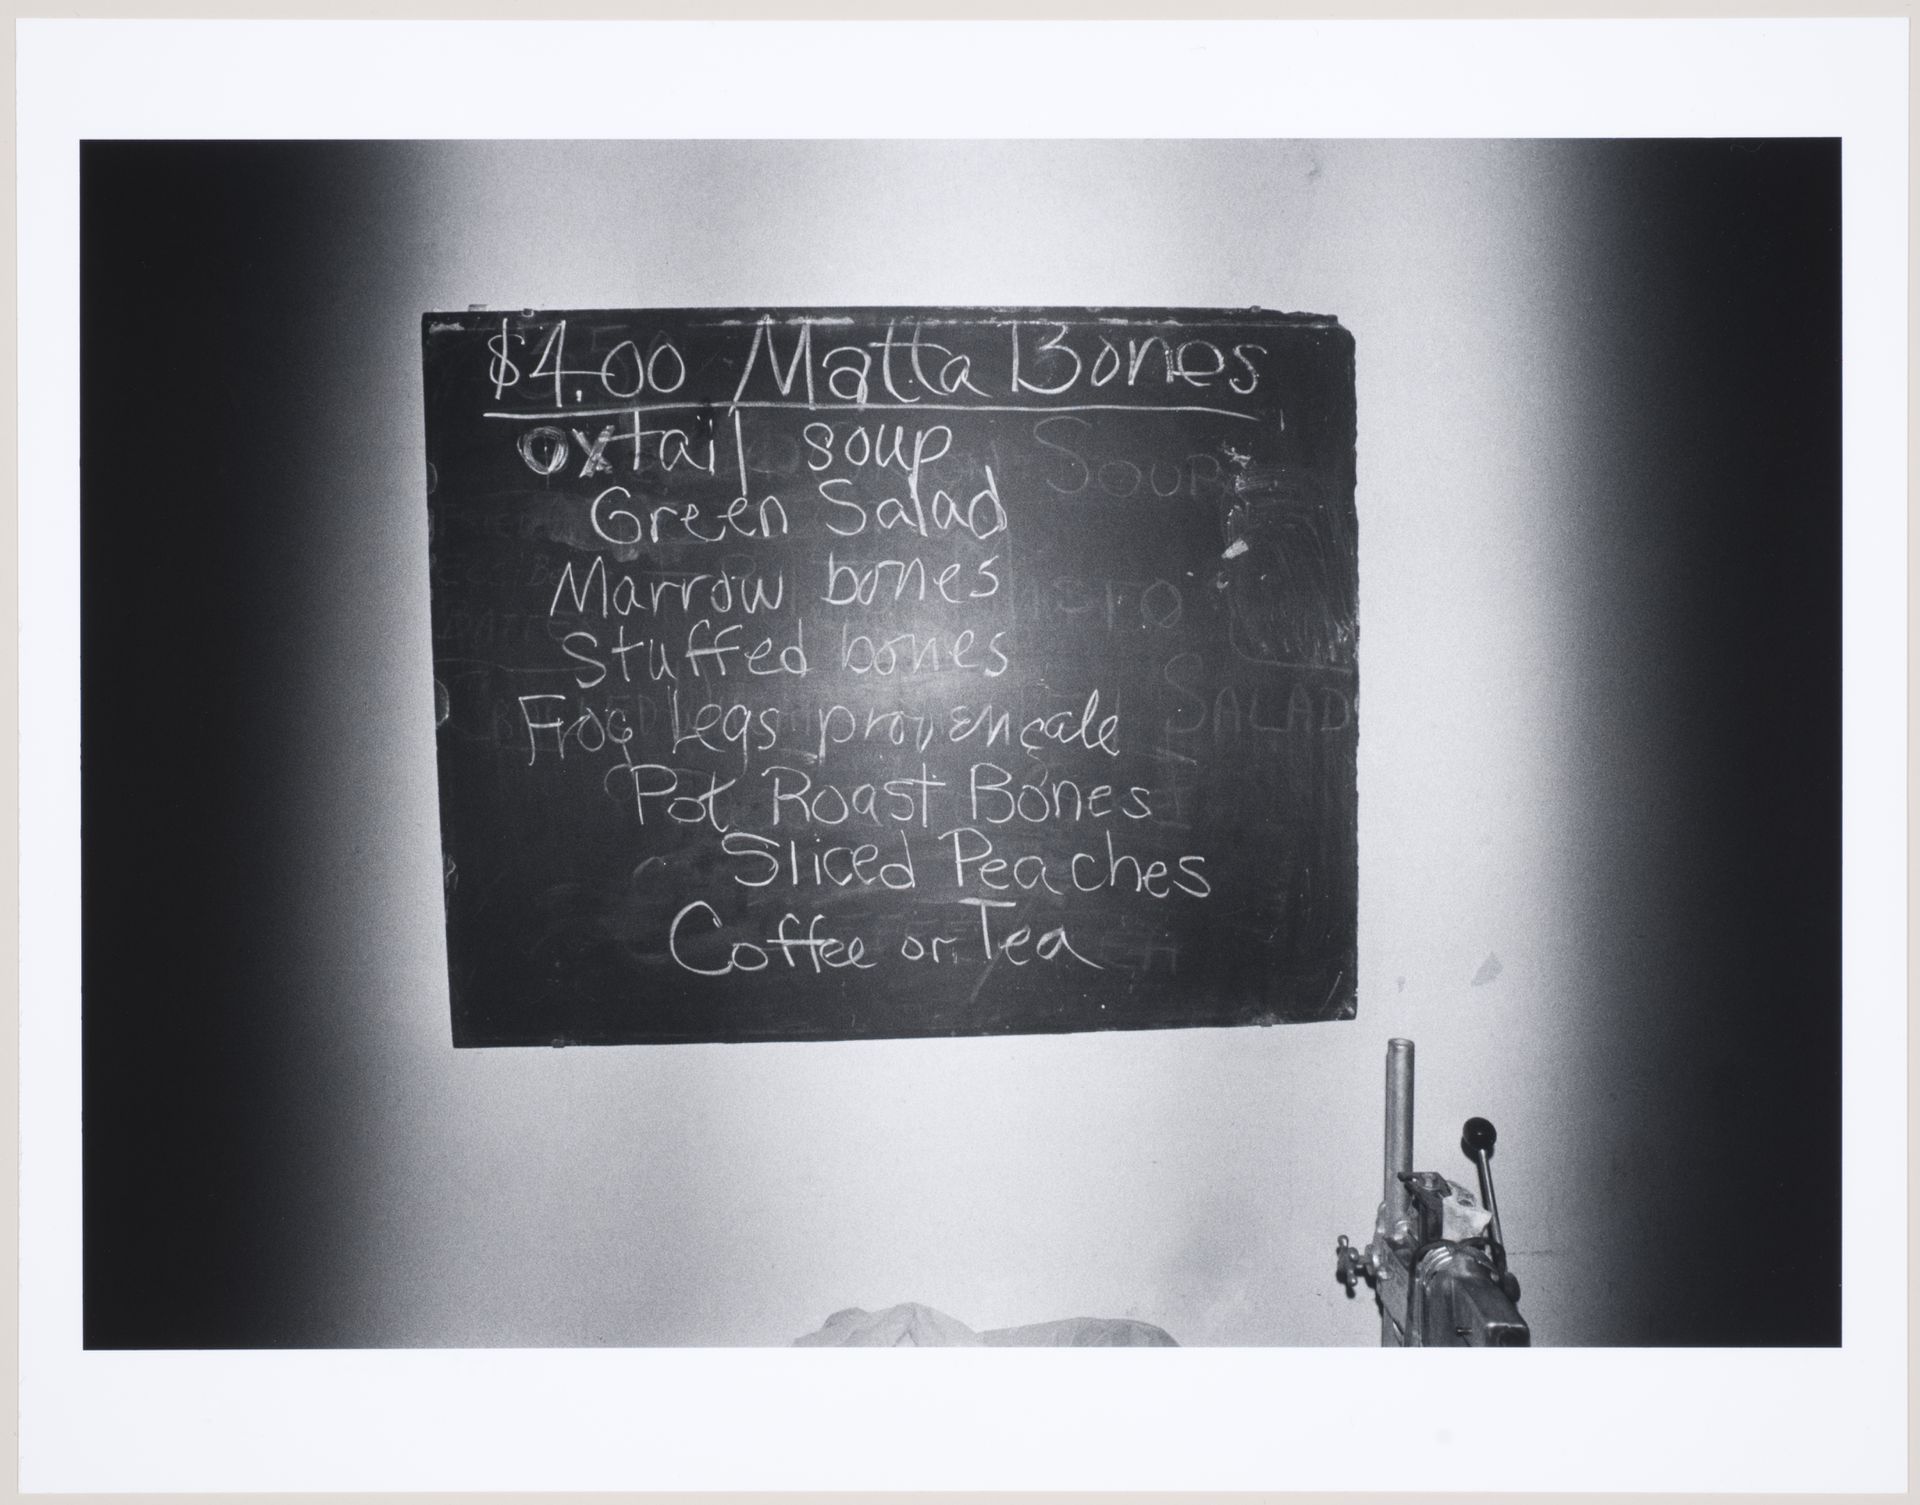 $4.00 Matta Bones
oxtail soup
Green Salad
Marrow bones
Stuffed bones
Frog Legs provençale
Pot Roast Bones
Sliced Peaches
Coffee or Tea
Soup
Salad